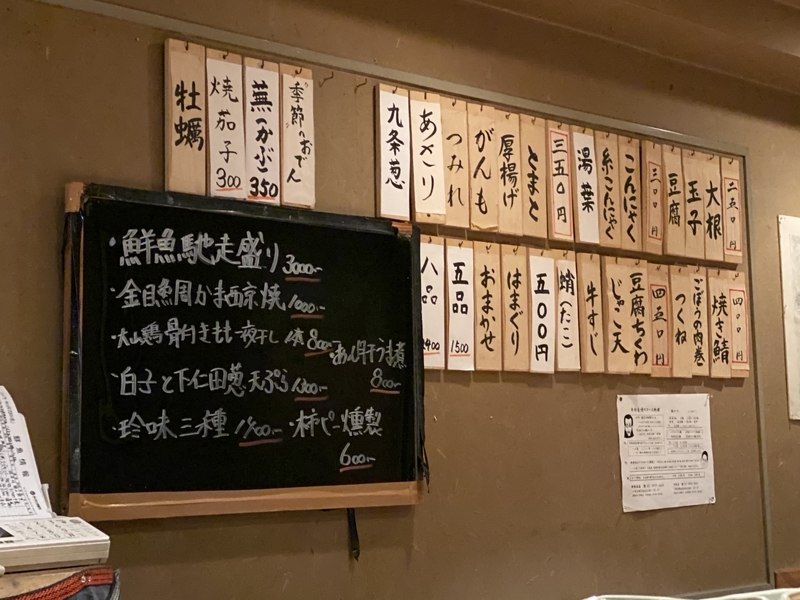 季節のおでん
蕪(かぶ) 350
焼茄子 300
牡蠣
二五〇円
大根
玉子
豆腐
三〇〇円
こんにゃく
糸こんにゃく
湯葉
三五〇円
とまと
厚揚げ
がんも
つみれ
あさり
九条葱
四〇〇円
焼き鯖
ごぼうの肉巻
つくね
四五〇円
豆腐ちくわ
じゃこ天
牛すじ
蛸(たこ)
五〇〇円
はまぐり
おまかせ
五品 1500
八品 2400
・鮮魚馳走盛り 3000-
・金目魚周かま西京焼 1000-
・大山鶏骨付きもも一夜干し 1本 800-
・あん肝うま煮 800-
・白子と下仁田葱天ぷら 1300-
・珍味三種
・柿ピー燻製 600-